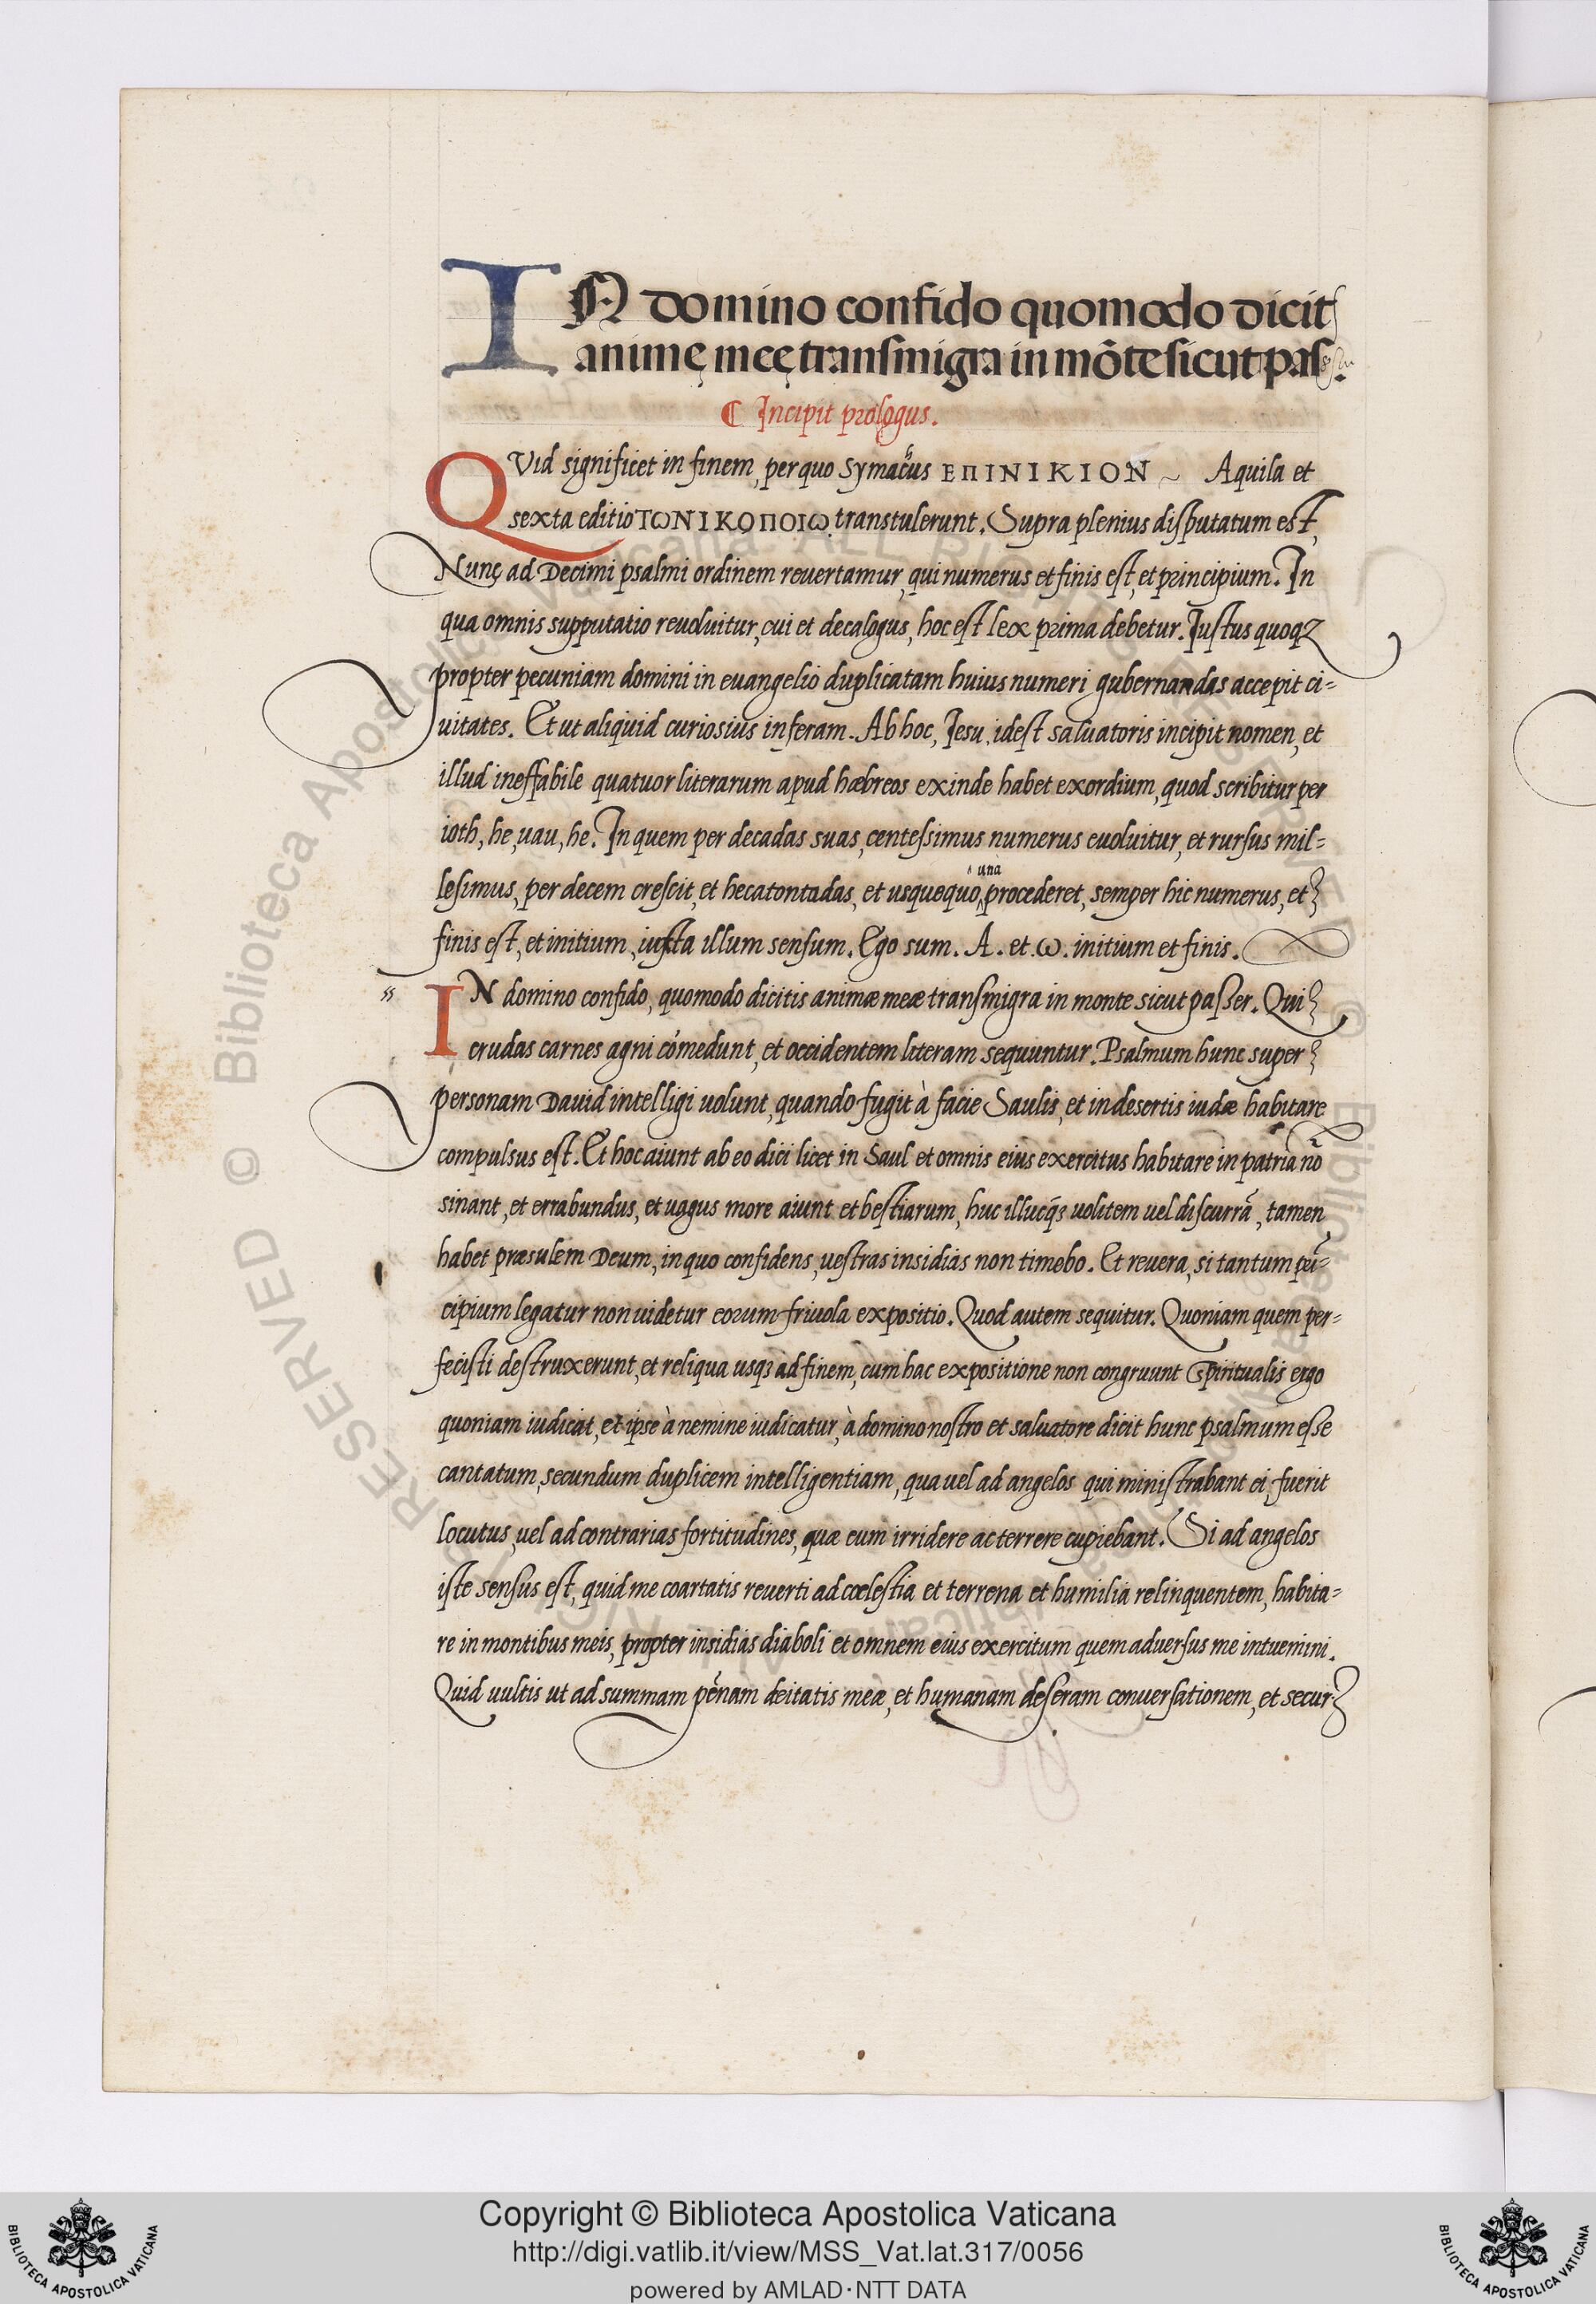 IN domino confido quomodo dicit
animę meę transmigra in mōte sicut pas
¶ Incipit prologus.
QVid significet in finem, per quo Symachus ΕΠΙΝΙΚΙΟΝ ~ Aquila et
sexta editio ΤωΝΙΚΟΠΟΙω transtulerunt. Supra plenius disputatum est,
Nunc ad Decimi psalmi ordinem reuertamur, qui numerus et finis est, et principium. In
qua omnis supputatio reuoluitur, cui et decalogus, hoc est lex prima debetur. Iustus quoqz
propter pecuniam domini in euangelio duplicatam huius numeri gubernandas accepit ci=
uitates. Et ut aliquid curiosius inferam. Ab hoc, Iesu, idest saluatoris incipit nomen, et
illud ineffabile quatuor literarum apud hæbreos exinde habet exordium, quod scribitur per
ioth, he, uau, he. In quem per decadas suas, centessimus numerus euoluitur, et rursus mil=
una
lesimus, per decem crescit, et hecatontadas, et usquequo, procederet, semper hic numerus, et
finis est, et initium, iuxta illum sensum. Ego sum. A. et. ω. initium et finis.
IN domino confido, quomodo dicitis animæ meæ transmigra in monte sicut passer. Qui
crudas carnes agni cómedunt, et occidentem literam sequuntur. Psalmum hunc super
personam Dauid intelligi uolunt, quando fugit à facie Saulis, et in desertis iudæ habitare
compulsus est. Et hoc aiunt ab eo dici licet in Saul et omnis eius exercitus habitare in patria nō
sinant, et errabundus, et uagus more aiunt et bestiarum, huc illucq́s uolitem uel discurrā, tamen
habet præsulem Deum, in quo confidens, uestras insidias non timebo. Et reuera, si tantum
cipium legatur non uidetur eorum friuola expositio. Quod autem sequitur. Quoniam quem per=
fecisti destruxerunt, et reliqua usqz ad finem, cum hac expositione non congruunt Spiritualis ergo
quoniam iudicat, et ipse à nemine iudicatur, à domino nostro et saluatore dicit hunc psalmum esse
cantatum, secundum duplicem intelligentiam, qua uel ad angelos qui ministrabant ei, fuerit
locutus, uel ad contrarias fortitudines, quæ eum irridere ac terrere cupiebant. Si ad angelos
iste sensus est, quid me coartatis reuerti ad cœlestia et terrena et humilia relinquentem, habita=
re in montibus meis, propter insidias diaboli et omnem eius exercitum quem aduersus me intuemini.
Quid uultis ut ad summam pęnam deitatis meæ, et humanam deseram conuersationem, et secur
© Biblioteca Apostolica Vaticana. ALL RIGHTS RESERVED
Copyright © Biblioteca Apostolica Vaticana
http://digi.vatlib.it/view/MSS_Vat.lat.317/0056
powered by AMLAD·NTT DATA
BIBLIOTECA APOSTOLICA VATICANA
BIBLIOTECA APOSTOLICA VATICANA